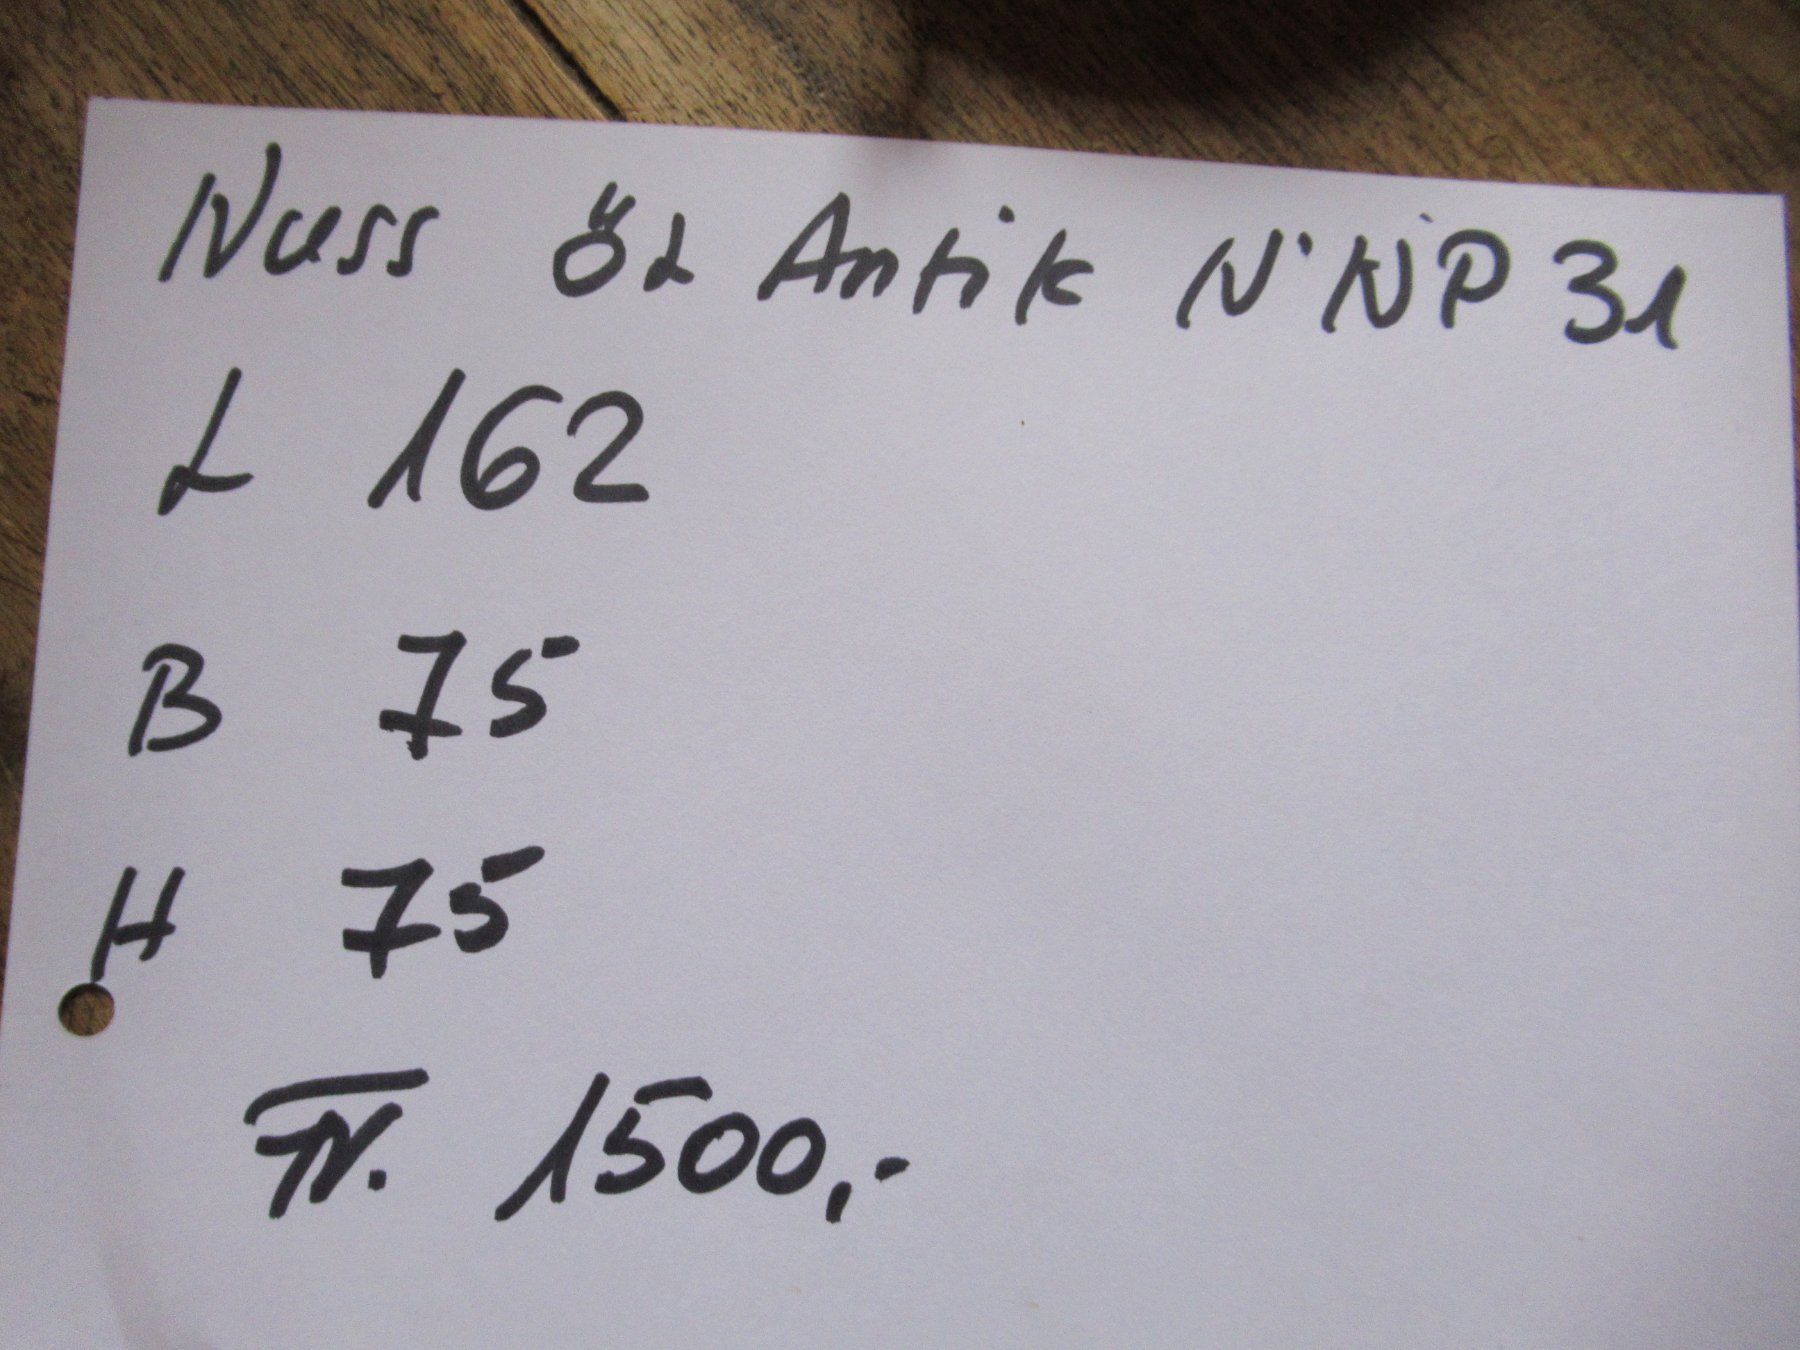 Nuss Öl Antik N' NNP 31
L 162
B 75
H 75
1500,-